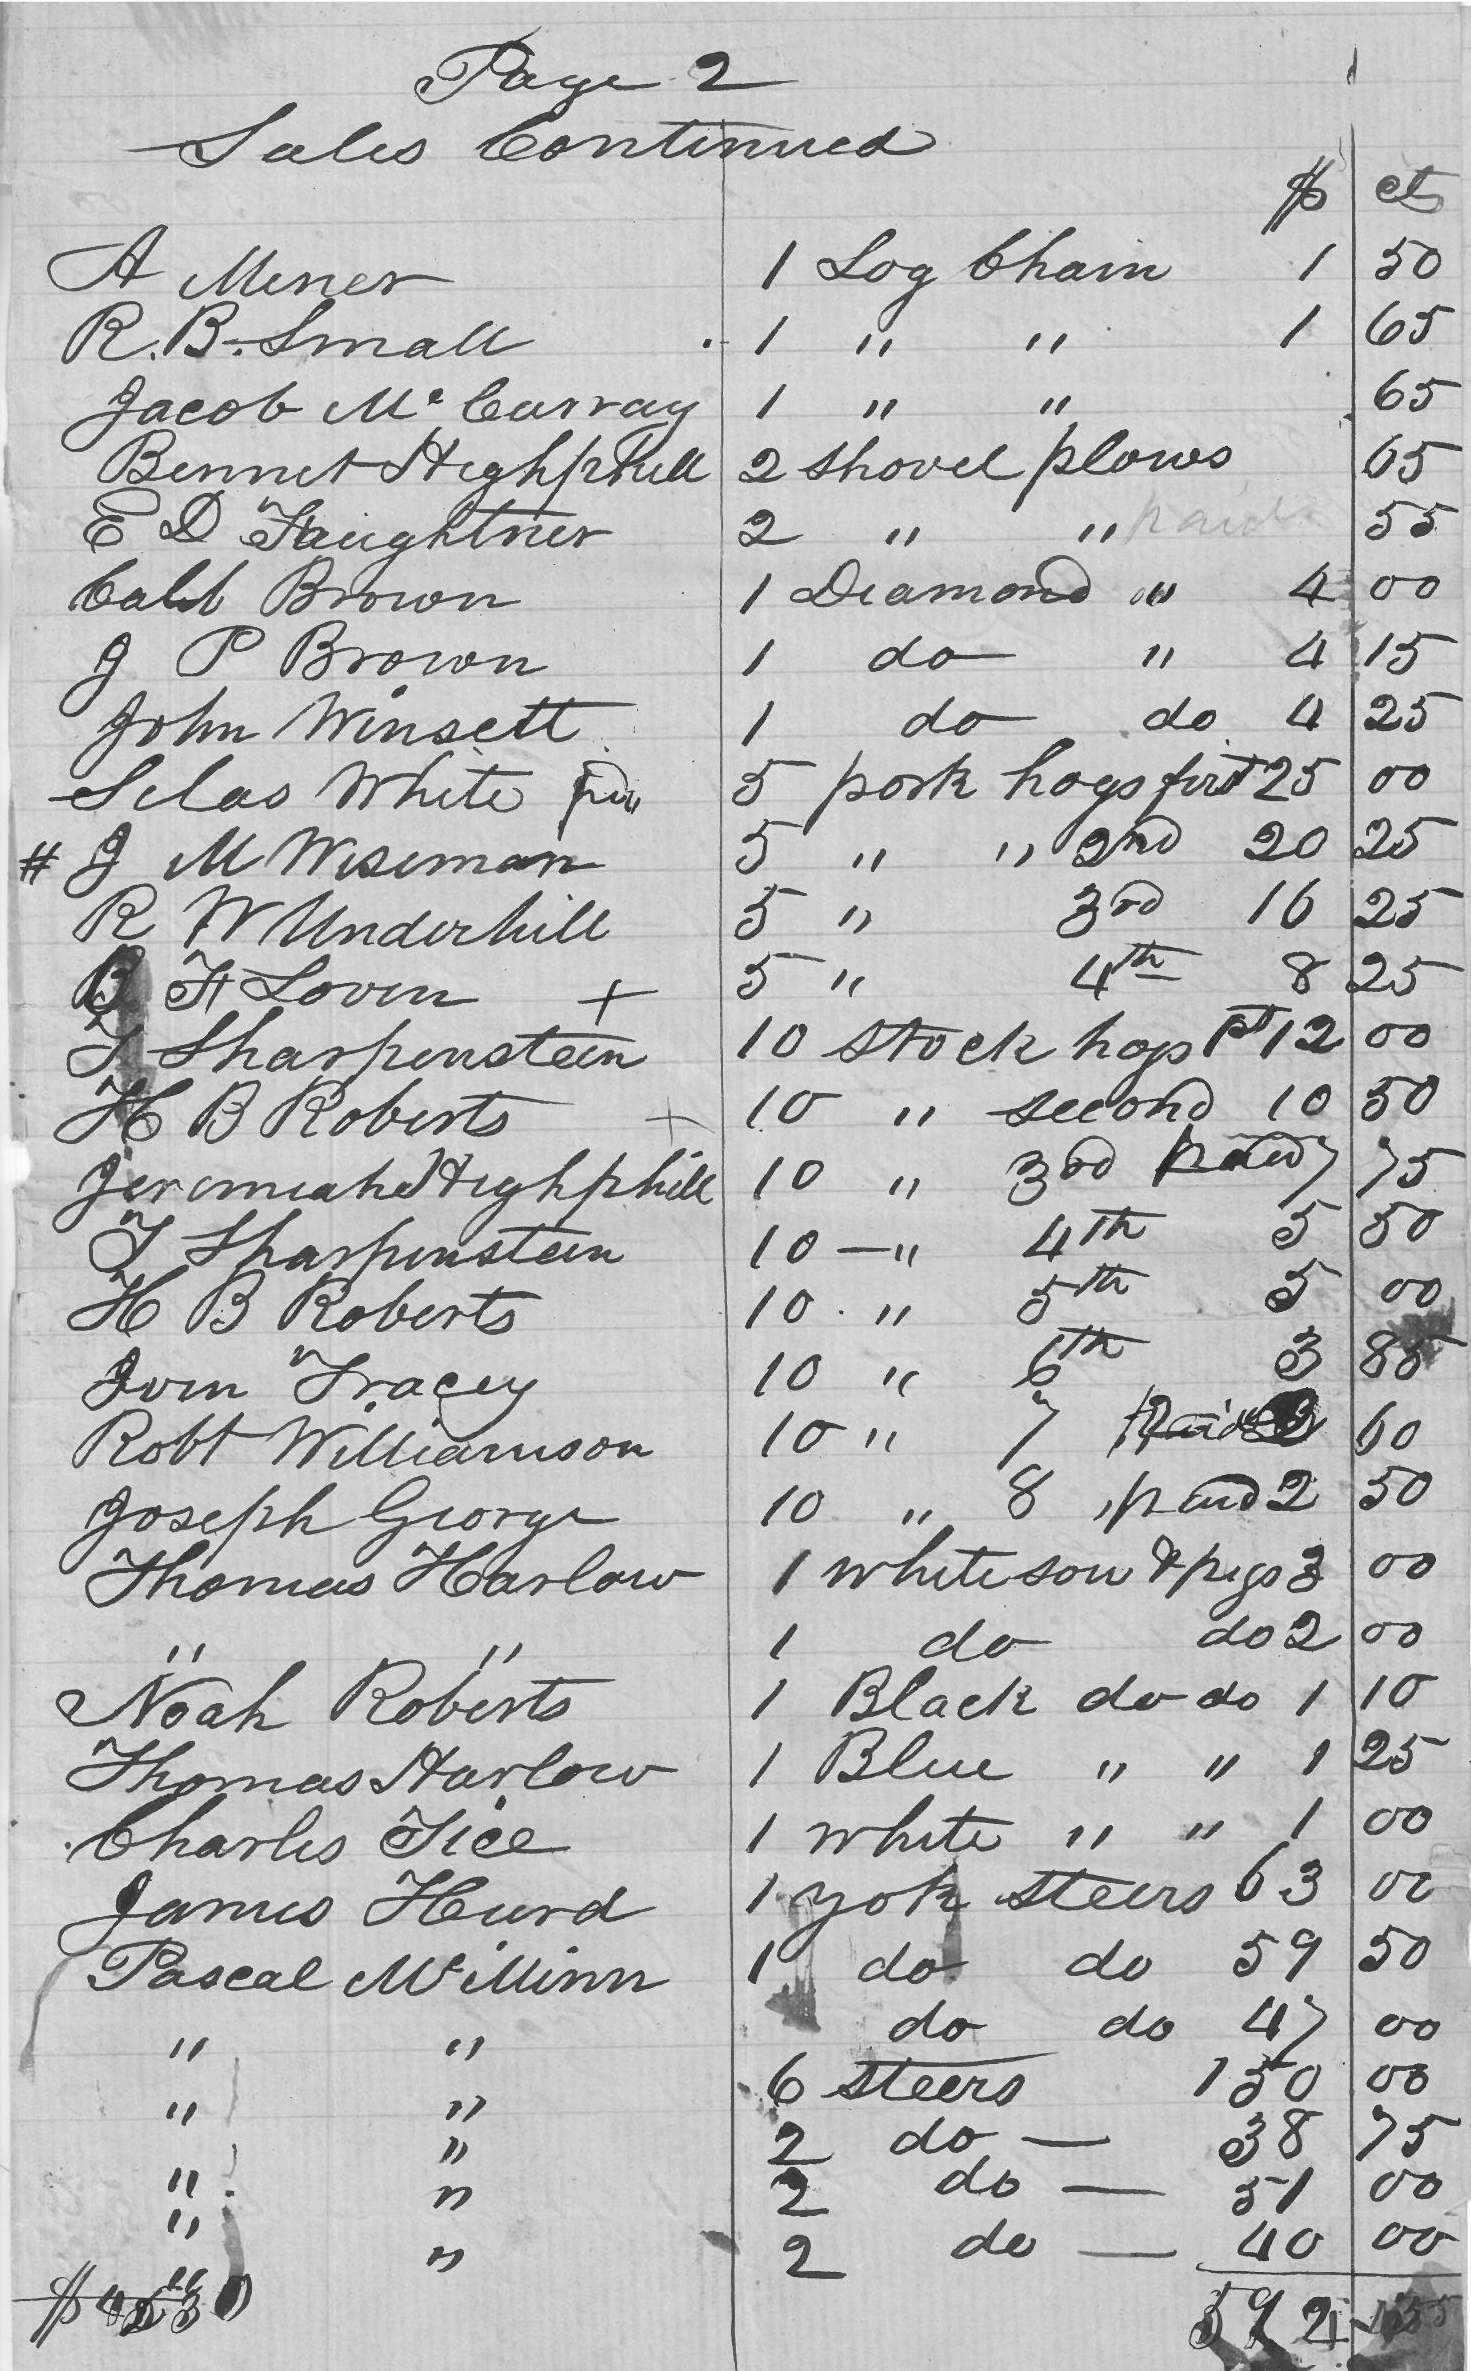 Page 2
Sales Continued
$ ct
A Miner 1 Log Chain 1 50
R. B. Small 1 " " 1 65
Jacob Mc Curray 1 " " 65
Bennet Highphill 2 shovel plows 65
E D Faughtner 2 " " paid 55
Calib Brown 1 Diamond " 4 00
J P Brown 1 do " 4 15
John Winsett 1 do do 4 25
Silas White 5 pork hogs first 25 00
# J M Wiseman 5 " " 2nd 20 25
R W Underhill 5 " 3rd 16 25
B F Loven + 5 " 4th 8 25
T Sharpenstein 10 stock hogs 1st 12 00
H B Roberts + 10 " second 10 50
Jeremiah Highphill 10 " 3rd paid 7 75
T Sharpenstein 10 — " 4th 5 50
H B Roberts 10 . " 5th 5 00
Tracey 10 " 6th 3 85
Robt Williamson 10 " 7 Paid 3 60
Joseph George 10 " 8 paid 2 50
Thomas Harlow 1 white sow & pigs 3 00
" " 1 do do 2 00
Noah Roberts 1 Black do do 1 10
Thomas Harlow 1 Blue " " 1 25
Charles Tice 1 white " " 1 00
James Hurd 1 yok steers 63 00
Pascal McMinn 1 do do 59 50
" " do do 47 00
" " 6 steers 150 00
" " 2 do — 38 75
" " 2 do — 51 00
" " 2 do — 40 00
592